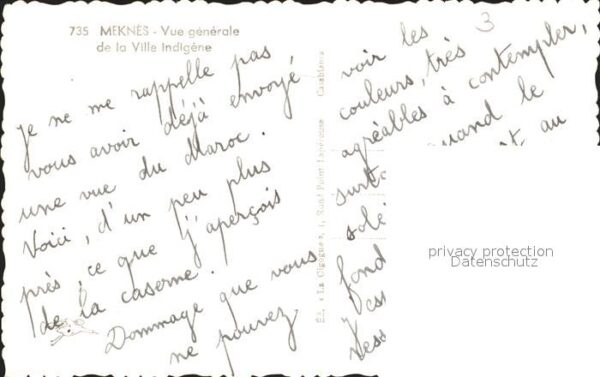 735 MEKNÈS - Vue générale
de la Ville Indigène
Je ne me rappelle pas
vous avoir déjà envoyé
une vue du Maroc.
Voici, d'un peu plus
près, ce que j'aperçois
de la caserne.
Dommage que vous
ne pouvez
Éd. "La Cigogne", 1, Rue Point Lapérouse Casablanca
3
voir les
couleurs, très
agréables à contempler,
quand le
au
fond
privacy protection
Datenschutz